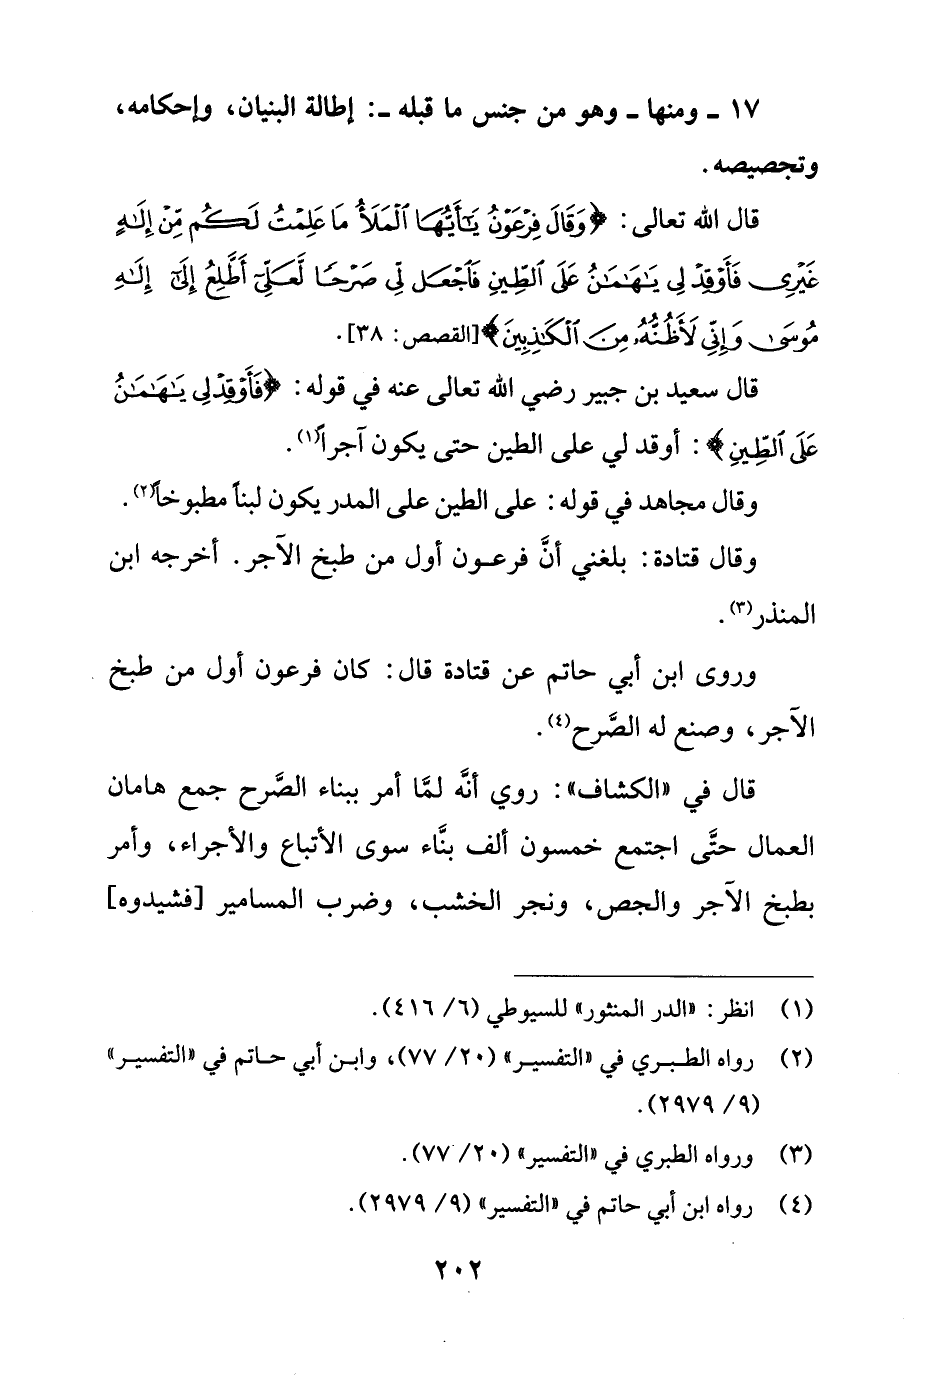 ١٧ ـ ومنها ـ وهو من جنس ما قبله ـ: إطالة البنيان، وإحكامه،
وتجصيصه.
قال الله تعالى: ﴿وَقَالَ فِرْعَوْنُ يَٰٓأَيُّهَا ٱلْمَلَأُ مَا عَلِمْتُ لَكُم مِّنْ إِلَٰهٍ
غَيْرِى فَأَوْقِدْ لِى يَٰهَٰمَٰنُ عَلَى ٱلطِّينِ فَٱجْعَل لِّى صَرْحًا لَّعَلِّىٓ أَطَّلِعُ إِلَىٰٓ إِلَٰهِ
مُوسَىٰ وَإِنِّى لَأَظُنُّهُۥ مِنَ ٱلْكَٰذِبِينَ﴾ [القصص: ٣٨].
قال سعيد بن جبير رضي الله تعالى عنه في قوله: ﴿فَأَوْقِدْ لِى يَٰهَٰمَٰنُ
عَلَى ٱلطِّينِ﴾: أوقد لي على الطين حتى يكون آجراً(١).
وقال مجاهد في قوله: على الطين على المدر يكون لبناً مطبوخاً(٢).
وقال قتادة: بلغني أنَّ فرعـون أول من طبخ الآجر. أخرجه ابن
المنذر(٣).
وروى ابن أبي حاتم عن قتادة قال: كان فرعون أول من طبخ
الآجر، وصنع له الصَّرح(٤).
قال في «الكشاف»: روي أنَّه لمَّا أمر ببناء الصَّرح جمع هامان
العمال حتَّى اجتمع خمسون ألف بنَّاء سوى الأتباع والأجراء، وأمر
بطبخ الآجر والجص، ونجر الخشب، وضرب المسامير [فشيدوه]
(١) انظر: «الدر المنثور» للسيوطي (٦/ ٤١٦).
(٢) رواه الطـبـري في «التفسيـر» (٢٠/ ٧٧)، وابـن أبي حـاتم في «التفسيـر»
(٩/ ٢٩٧٩).
(٣) ورواه الطبري في «التفسير» (٢٠/ ٧٧).
(٤) رواه ابن أبي حاتم في «التفسير» (٩/ ٢٩٧٩).
٢٠٢